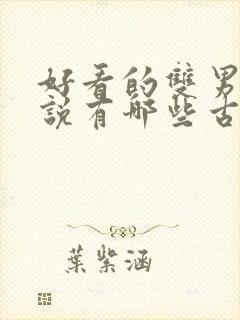 好看的雙男
說有哪些古
葉紫涵